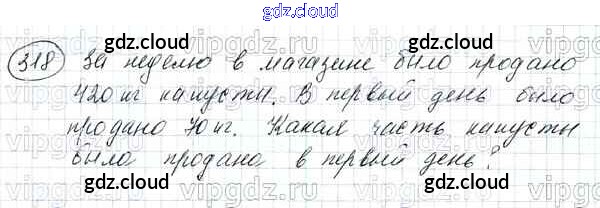 gdz.cloud
318 За неделю в магазине было продано
420 кг капусты. В первый день было
продано 70 кг. Какая часть капусты
была продана в первый день?
gdz.cloud gdz.cloud
gdz.cloud gdz.cloud
gdz.cloud gdz.cloud